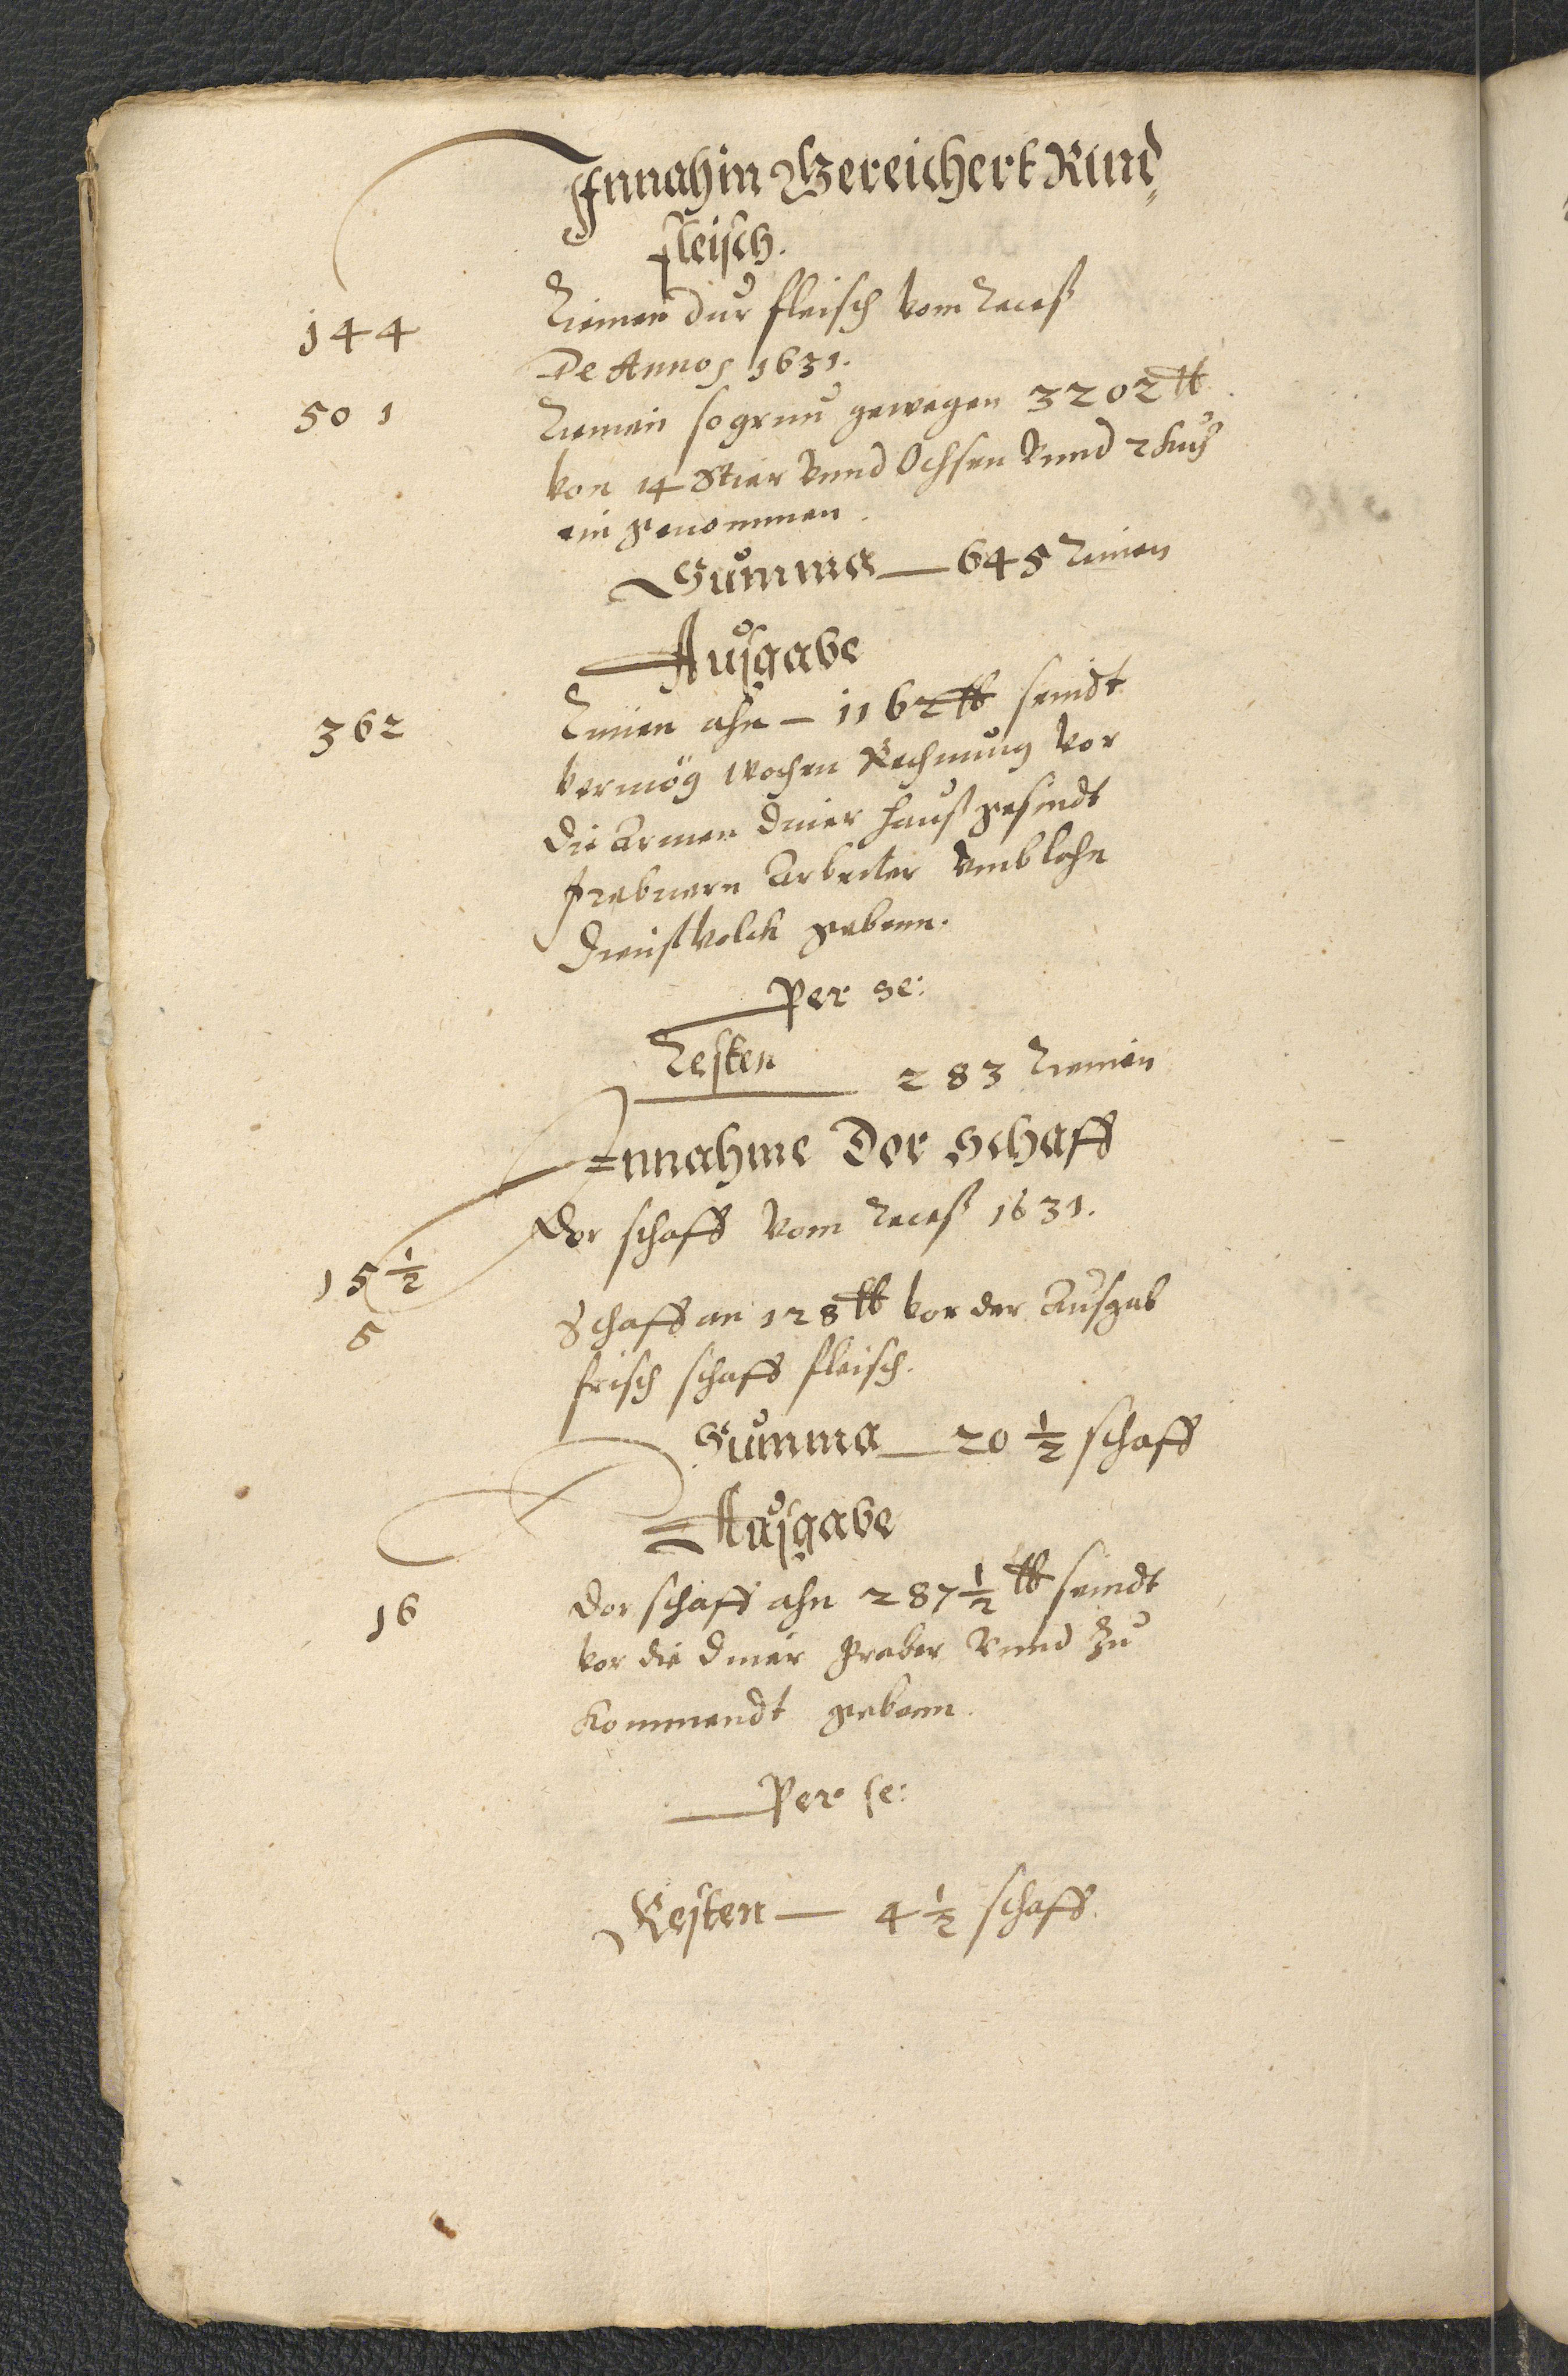 Innahm Gereichert Rind„
fleisch.
144 Riemen dur fleisch vom Recess
De Annoz 1631.
501 Riemen so grun gewegen 3202 ℔.
von 14 Stier vnnd Ochsen vnnd 2 kuh
ein genommen.
Summa — 645 Riemen
Ausgabe
362 Riemen ahn — 1162 ℔ seindt
vermög wochen Rechnung vor
die Armen diner haussgesindt
Arbeiter
dienst volck gebenn.
Per se:
Resten 283 Riemen
Innahme Der Schaff
15 1/2 Dor schaff vom Recess 1631.
5 Schaff an 128 ℔ vor der Ausgab
frisch schaff fleisch.
Summa — 20 1/2 schaff
Ausgabe
16 Dor schaff ahn 287 1/2 ℔ seindt
vor die diner graber vnnd zu
kommendt gebenn.
Per se:
Resten — 4 1/2 schaff.